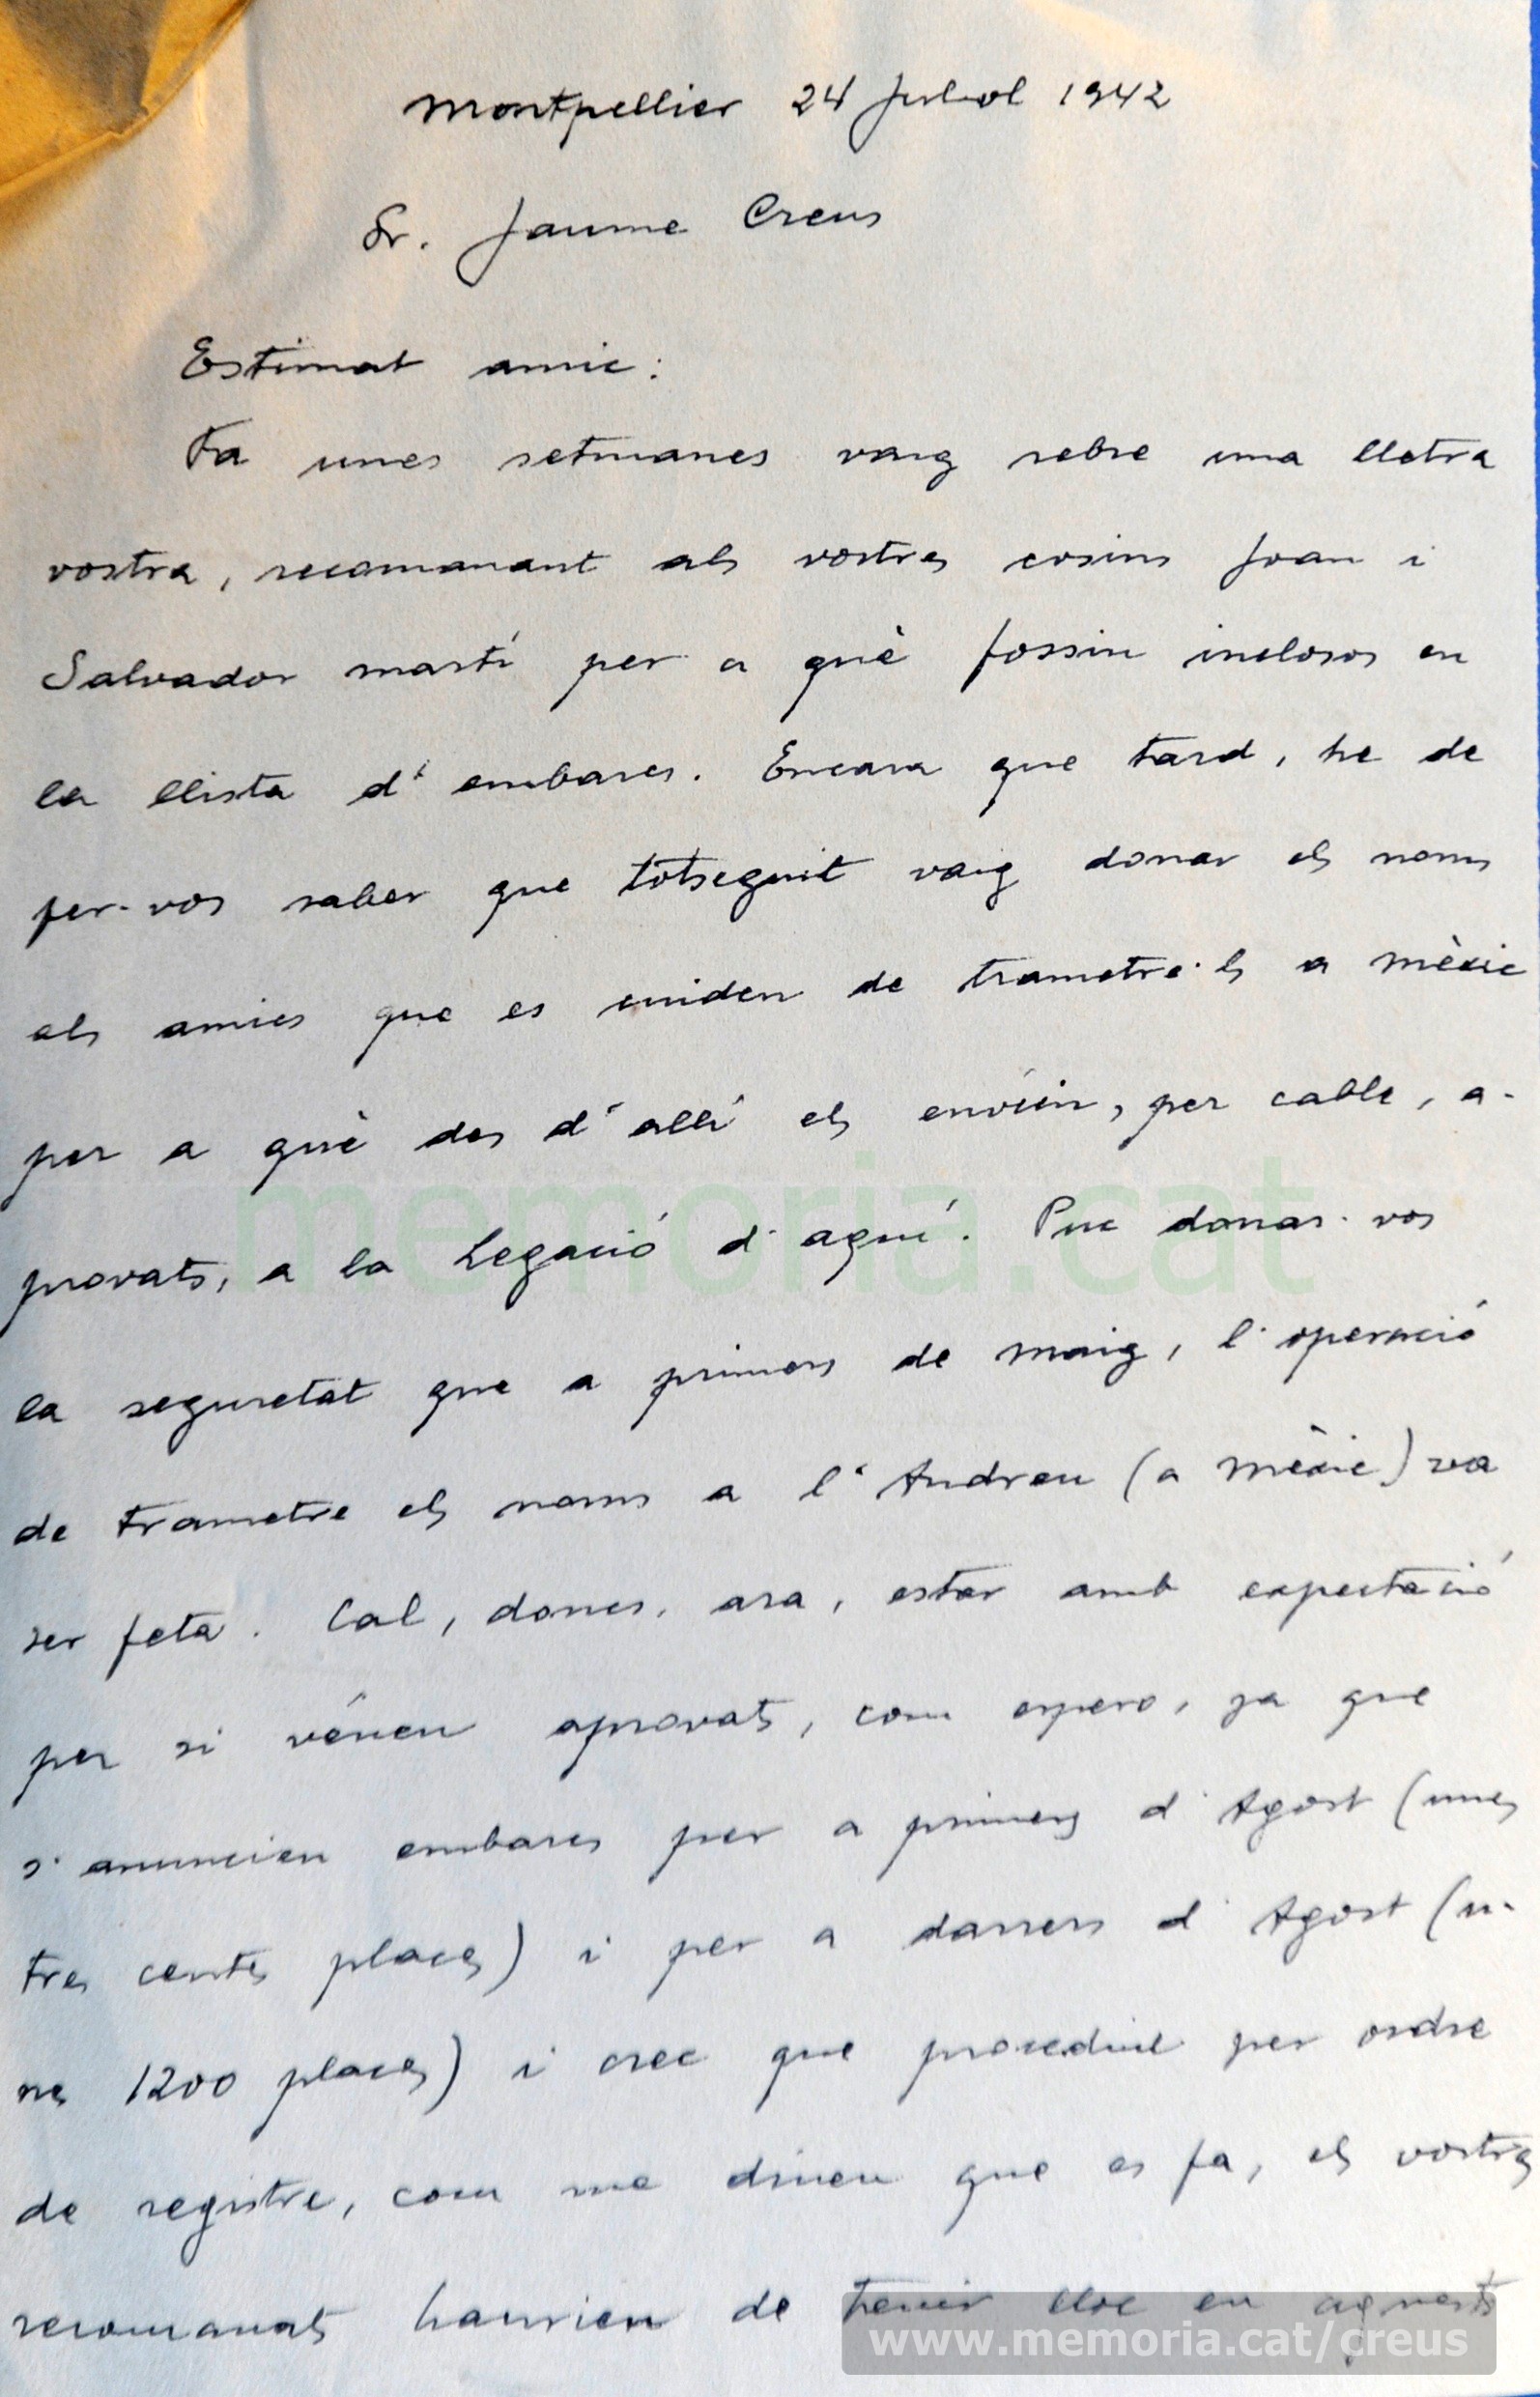 Montpellier 24 Juliol 1942
Sr. Jaume Creus
Estimat amic:
Fa unes setmanes vaig rebre una lletra
vostra, recomanant als vostres cosins Joan i
Salvador Martí per a què fossin inclosos en
la llista d'embarcs. Encara que tard, he de
fer-vos saber que totseguit vaig donar els noms
als amics que es cuiden de trametre'ls a Mèxic
per a què des d'allí els enviïn, per cable, a-
provats, a la Legació d'aquí. Puc donar-vos
la seguretat que a primers de Maig, l'operació
de trametre els noms a l'Andreu (a Mèxic) va
ser feta. Cal, doncs, ara, estar amb expectació
per si vénen aprovats, com espero, ja que
s'anuncien embarcs per a primers d'Agost (unes
tres centes places) i per a darrers d'Agost (u-
nes 1200 places) i crec que procedint per ordre
de registre, com me diuen que es fa, els vostres
recomanats haurien de tenir lloc en aquests
memoria.cat
www.memoria.cat/creus